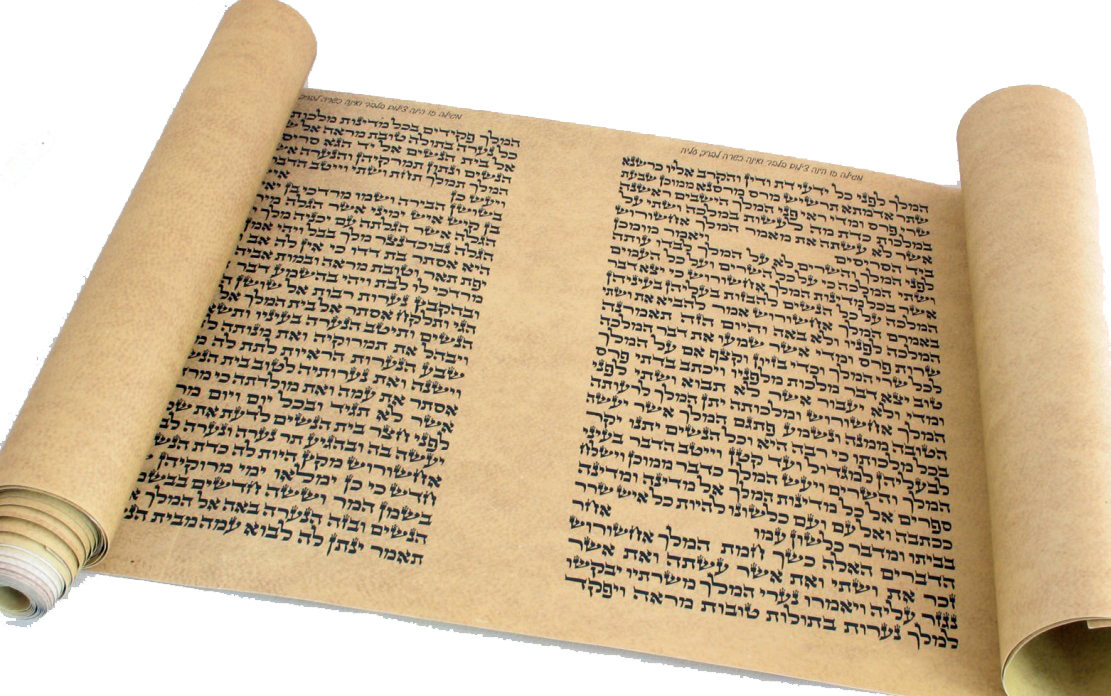 מגילה זו הינה צילום בלבד ואינה כשרה לברך עליה
המלך לפני כל ידעי דת ודין והקרב אליו כרשנא
שתר אדמתא תרשיש מרס מרסנא ממוכן שבעת
שרי פרס ומדי ראי פני המלך הישבים ראשנה
במלכות כדת מה לעשות במלכה ושתי על
אשר לא עשתה את מאמר המלך אחשורוש
ביד הסריסים ויאמר מומכן
לפני המלך והשרים לא על המלך לבדו עותה
ושתי המלכה כי על כל השרים ועל כל העמים
אשר בכל מדינות המלך אחשורוש כי יצא דבר
המלכה על כל הנשים להבזות בעליהן בעיניהן
באמרם המלך אחשורוש אמר להביא את ושתי
המלכה לפניו ולא באה והיום הזה תאמרנה
שרות פרס ומדי אשר שמעו את דבר המלכה
לכל שרי המלך וכדי בזיון וקצף אם על המלך
טוב יצא דבר מלכות מלפניו ויכתב בדתי פרס
ומדי ולא יעבור אשר לא תבוא ושתי לפני
המלך אחשורוש ומלכותה יתן המלך לרעותה
הטובה ממנה ונשמע פתגם המלך אשר יעשה
בכל מלכותו כי רבה היא וכל הנשים יתנו יקר
לבעליהן למגדול ועד קטן וייטב הדבר בעיני
המלך והשרים ויעש המלך כדבר ממוכן וישלח
ספרים אל כל מדינות המלך אל מדינה ומדינה
ככתבה ואל עם ועם כלשונו להיות כל איש שרר
בביתו ומדבר כלשון עמו אחר
הדברים האלה כשך חמת המלך אחשורוש
זכר את ושתי ואת אשר עשתה ואת אשר
נגזר עליה ויאמרו נערי המלך משרתיו יבקשו
למלך נערות בתולות טובות מראה ויפקד
מגילה זו הינה צילום בלבד ואינה כשרה
המלך פקידים בכל מדינות
כל נערה בתולה טובת מראה אל
אל בית הנשים אל יד הגא
הנשים ונתון תמרוקיהן והנערה
המלך תמלך תחת ושתי וייטב
ויעש כן
בשושן הבירה ושמו מרדכי בן
בן קיש איש ימיני אשר הגלה
הגלה אשר הגלתה עם יכניה מלך
הגלה נבוכדנצר מלך בבל ויהי
היא אסתר בת דדו כי אין לה אב
יפת תאר וטובת מראה ובמות אביה
מרדכי לו לבת ויהי בהשמע דבר
ובהקבץ נערות רבות אל שושן
הגי ותלקח אסתר אל בית המלך
הנשים ותיטב הנערה בעיניו
ויבהל את תמרוקיה ואת מנותה
שבע הנערות הראיות לתת לה
וישנה ואת נערותיה לטוב בית
אסתר את עמה ואת מולדתה כי
אשר לא תגיד ובכל יום ויום
לפני חצר בית הנשים לדעת את
יעשה בה ובהגיע תר נערה ונערה
אחשורוש מקץ היות לה כדת
חדש כי כן ימלאו ימי מרוקיהן
בשמן המר וששה חדשים
הנשים ובזה הנערה באה אל המלך
תאמר ינתן לה לבוא עמה מבית